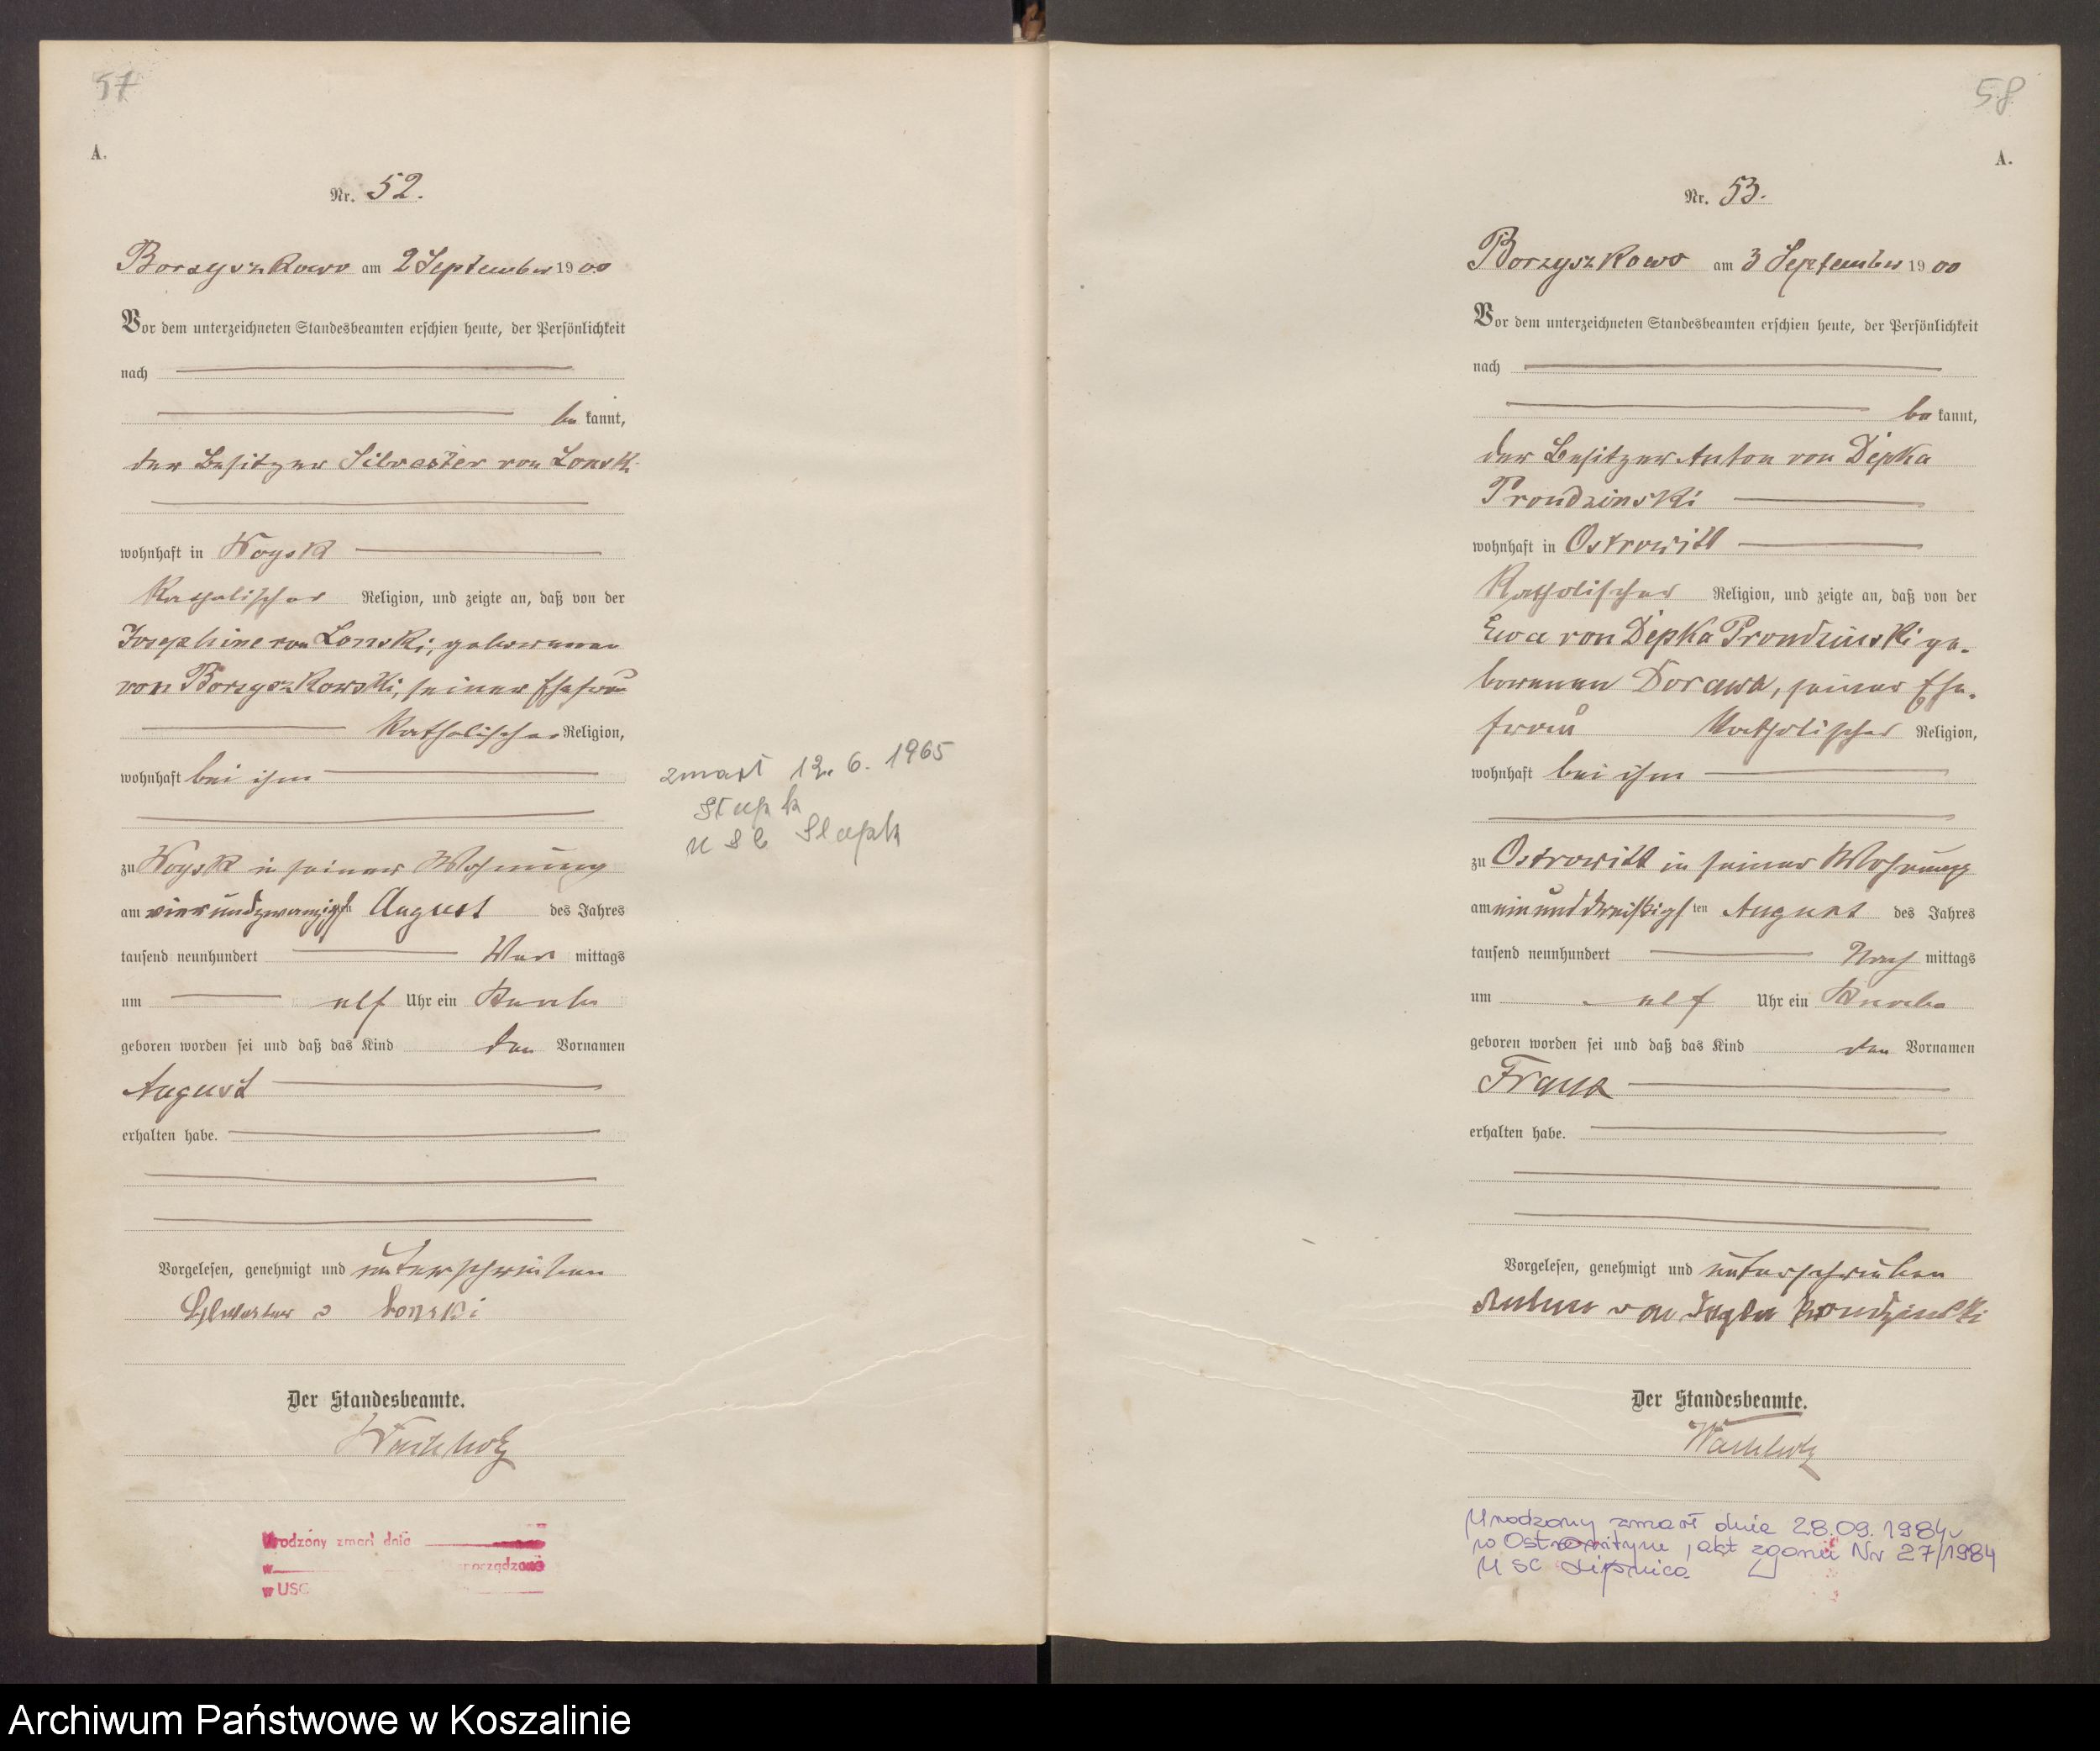 57
A.
Nr. 52.
Borzyszkowo am 2 September 1900
Vor dem unterzeichneten Standesbeamten erschien heute, der Persönlichkeit
nach
be kannt,
der Besitzer Silvester von Lonski
wohnhaft in Woysk
Katholischer Religion, und zeigte an, daß von der
Josephine von Lonski, geborenen
von Borzyszkowski, seiner Ehefrau
Katholischer Religion,
wohnhaft bei ihm
zu Woysk in seiner Wohnung
am vierundzwanzigsten August des Jahres
tausend neunhundert Vor mittags
um elf Uhr ein Knabe
geboren worden sei und daß das Kind den Vornamen
August
erhalten habe.
Vorgelesen, genehmigt und unterschrieben
Sylvester v Lonski
Der Standesbeamte.
Wachholz
Urodzony zmarł dnia
w sporządzono
w USC
zmarł 12. 6. 1965
Słupsk
USC Słupsk
58
A.
Nr. 53.
Borzyszkowo am 3 September 1900
Vor dem unterzeichneten Standesbeamten erschien heute, der Persönlichkeit
nach
be kannt,
der Besitzer Anton von Depka
Prondzinski
wohnhaft in Ostrowitt
Katholischer Religion, und zeigte an, daß von der
Ewa von Depka Prondzinski ge-
borenen Dorawa, seiner Ehe-
frau Katholischer Religion,
wohnhaft bei ihm
zu Ostrowitt in seiner Wohnung
am einunddreißigsten August des Jahres
tausend neunhundert Nach mittags
um elf Uhr ein Knabe
geboren worden sei und daß das Kind den Vornamen
Franz
erhalten habe.
Vorgelesen, genehmigt und unterschrieben
Anton von Prondzinski
Der Standesbeamte.
Wachholz
Urodzony zmarł dnia 28.09.1984
w Ostrowitym, akt zgonu Nr 27/1984
USC Lipnica
Archiwum Państwowe w Koszalinie